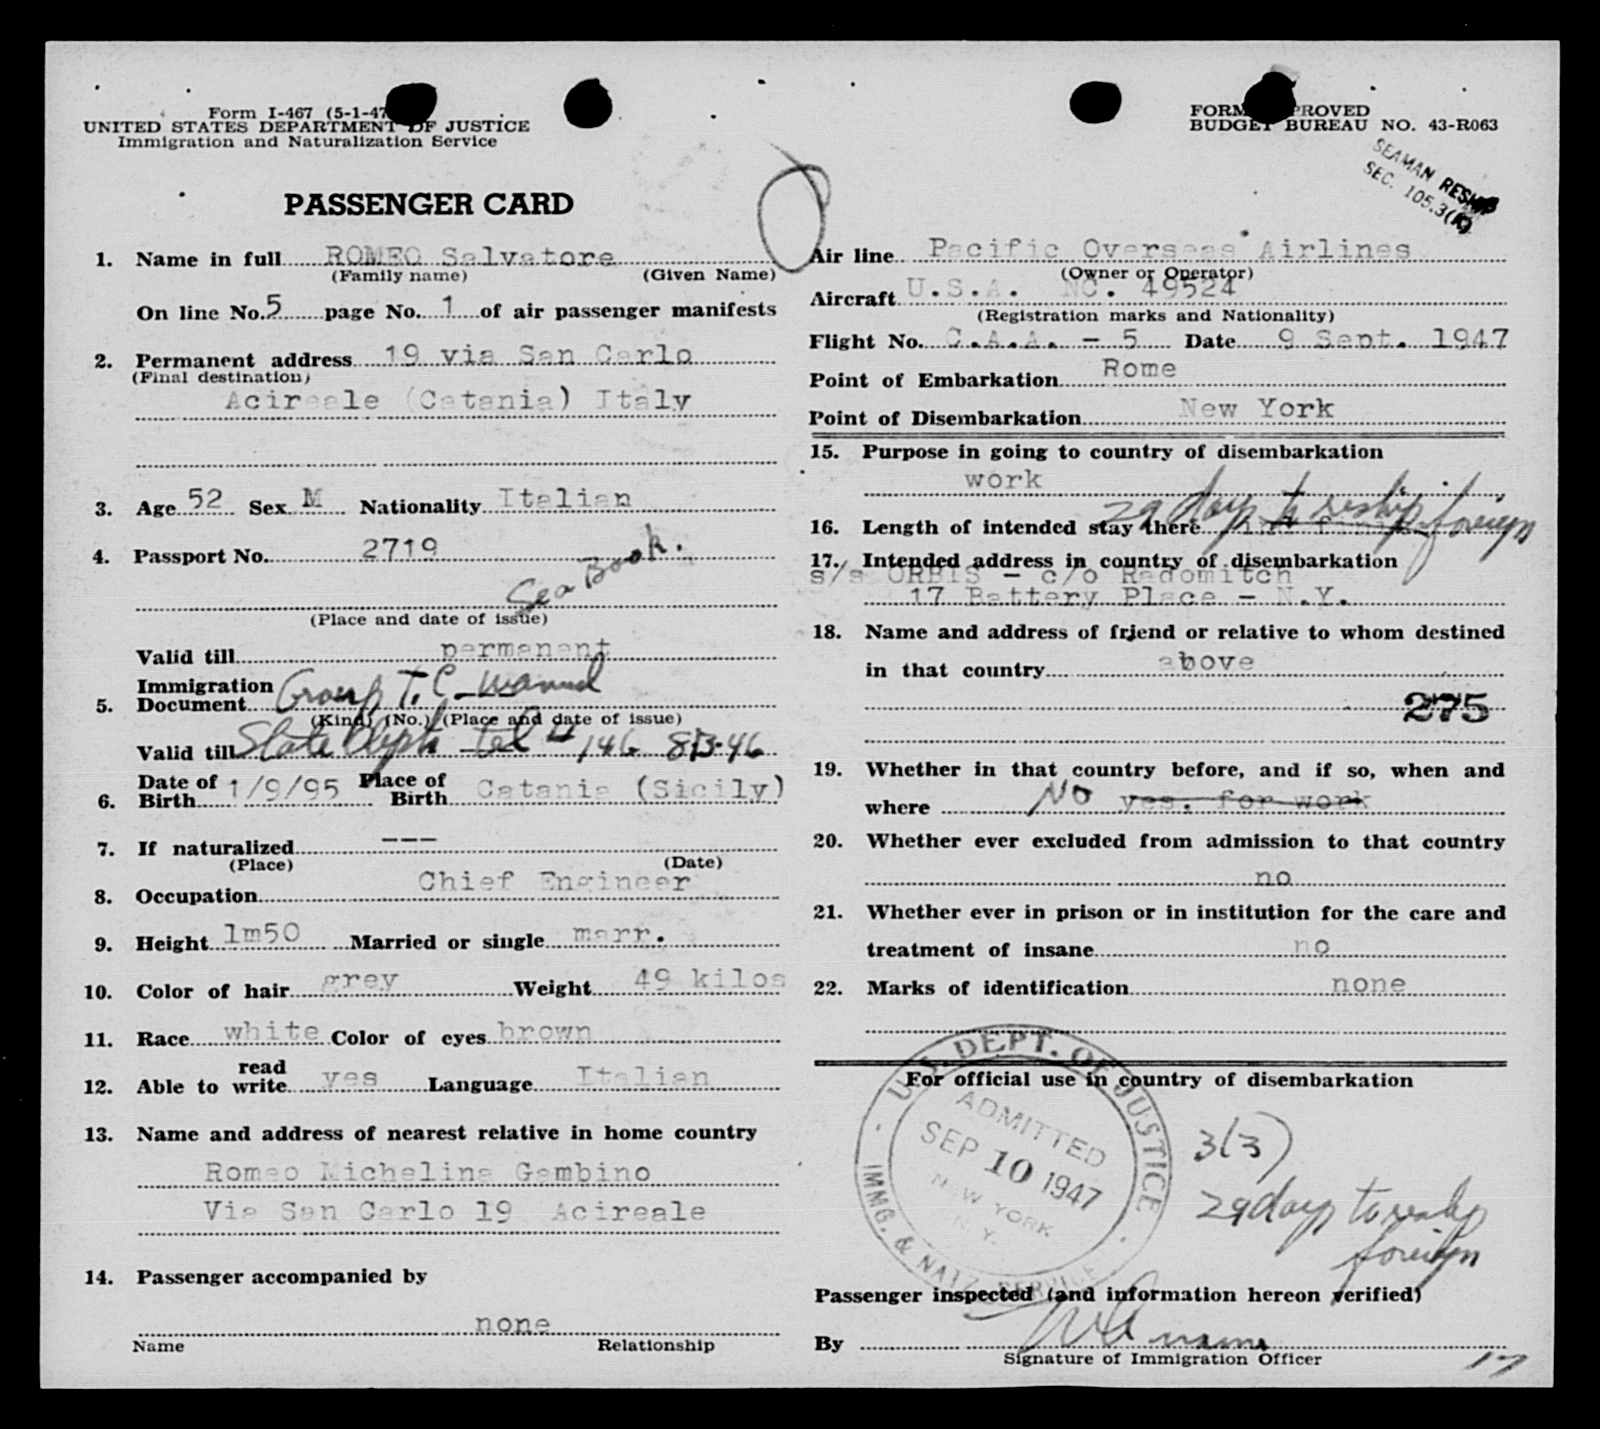 Form I-467 (5-1-47
UNITED STATES DEPARTMENT OF JUSTICE
Immigration and Naturalization Service
FORM APPROVED
BUDGET BUREAU NO. 43-R063
SEAMAN RESHIP
SEC. 105.3(K)
PASSENGER CARD
1. Name in full ROMEO Salvatore
(Family name) (Given Name)
On line No. 5 page No. 1 of air passenger manifests
2. Permanent address 19 via San Carlo
(Final destination)
Acireale (Catania) Italy
3. Age 52 Sex M Nationality Italian
4. Passport No. 2719
Sea Book.
(Place and date of issue)
Valid till permanent
5. Immigration Document Group T. C. waived
(Kind) (No.) (Place and date of issue)
Valid till State Dept tel # 146 8-13-46
6. Date of Birth 1/9/95 Place of Birth Catania (Sicily)
7. If naturalized ---
(Place) (Date)
8. Occupation Chief Engineer
9. Height 1m50 Married or single marr.
10. Color of hair grey Weight 49 kilos
11. Race white Color of eyes brown
12. Able to read write yes Language Italian
13. Name and address of nearest relative in home country
Romeo Michelina Gambino
Via San Carlo 19 Acireale
14. Passenger accompanied by
none
Name Relationship
Air line Pacific Overseas Airlines
(Owner or Operator)
Aircraft U.S.A. NC. 49524
(Registration marks and Nationality)
Flight No. C.A.A. - 5 Date 9 Sept. 1947
Point of Embarkation Rome
Point of Disembarkation New York
15. Purpose in going to country of disembarkation
work
16. Length of intended stay there 29 days to reship foreign
17. Intended address in country of disembarkation
s/s ORBIS - c/o Radomitch
17 Battery Place - N.Y.
18. Name and address of friend or relative to whom destined
in that country above
275
19. Whether in that country before, and if so, when and
where No yes. for work
20. Whether ever excluded from admission to that country
no
21. Whether ever in prison or in institution for the care and
treatment of insane no
22. Marks of identification none
For official use in country of disembarkation
U.S. DEPT. OF JUSTICE
ADMITTED
SEP 10 1947
NEW YORK
N. Y.
IMMG. & NATZ. SERVICE
3(3)
29 days to reship
foreign
Passenger inspected (and information hereon verified)
By
Signature of Immigration Officer
17